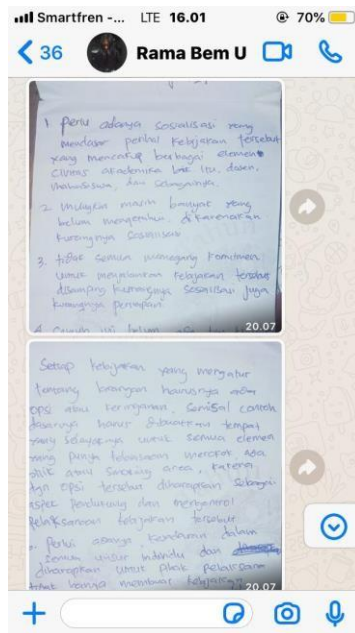 Smartfren -... LTE 16.01 70%
36 Rama Bem U
1. Perlu adanya sosialisasi yang
mendasar perihal Kebijakan tersebut
yang mencakup berbagai elemen
civitas akademika itu, dosen,
mahasiswa, dan sebagainya.
2. Mungkin masih banyak yang
belum mengetahui, dikarenakan
kurangnya sosialisasi
3. tidak semua memegang komitmen
untuk menjalankan Kebijakan tersebut
disamping kurangnya sosialisasi juga
kurangnya
20.07
Setiap Kebijakan yang mengatur
tentang larangan harusnya ada
opsi atau keringanan, semisal contoh
dasarnya harus disediakan tempat
yang selayaknya untuk semua elemen
yang punya kebiasaan merokok ada
atau smoking area, karena
dgn opsi tersebut diharapkan sebagai
aspek pendukung dan mengontrol
pelaksanaan kebijakan tersebut
Perlu adanya kesadaran dalam
semua unsur individu dan
diharapkan untuk pihak pelaksana
tidak hanya membuat kebijakan
20.07